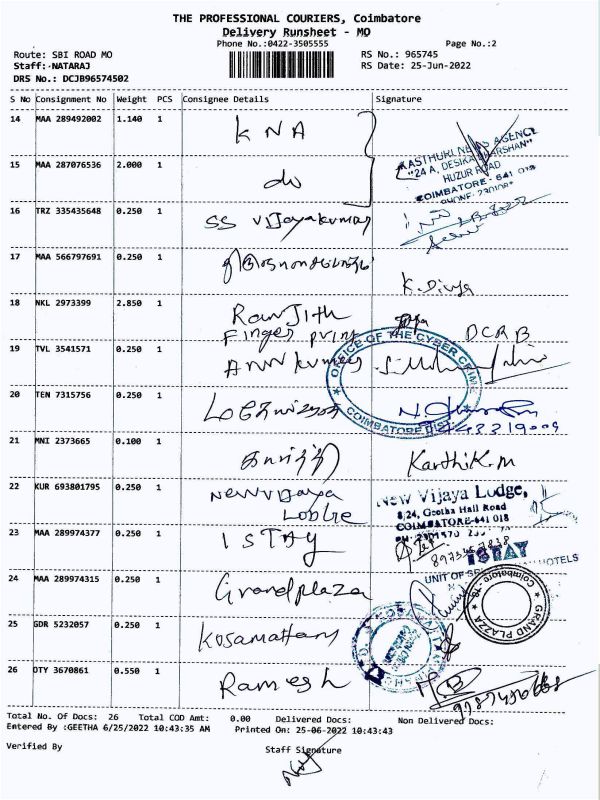 THE PROFESSIONAL COURIERS, Coimbatore
Delivery Runsheet - MO
Phone No.:0422-3505555
Page No.:2
Route: SBI ROAD MO
RS No.: 965745
Staff:-NATARAJ
RS Date: 25-Jun-2022
DRS No.: DCJB96574502
S No Consignment No Weight PCS Consignee Details Signature
14 MAA 289492002 1.140 1 KNA
KASTHURI NEWS AGENCY
"24 A, DESIKA DARSHAN"
HUZUR ROAD
COIMBATORE - 641 018
15 MAA 287076536 2.000 1 do
16 TRZ 335435648 0.250 1 SS Vijayakumar
17 MAA 566797691 0.250 1
K. Divya
18 NKL 2973399 2.850 1 Ranjith
Finger print DCRB
OFFICE OF THE CYBER CRIME
COIMBATORE DIST
19 TVL 3541571 0.250 1
20 TEN 7315756 0.250 1
21 MNI 2373665 0.100 1 Karthik.M
22 KUR 693801795 0.250 1 New Vijaya
New Vijaya Lodge,
8/24, Geetha Hall Road
COIMBATORE-641 018
23 MAA 289974377 0.250 1 ISTAY
ISTAY
HOTELS
24 MAA 289974315 0.250 1 Grandplaza
GRAND PLAZZA
25 GDR 5232057 0.250 1
26 OTY 3670861 0.550 1 Ramesh
Total No. Of Docs: 26 Total COD Amt: 0.00 Delivered Docs: Non Delivered Docs:
Entered By :GEETHA 6/25/2022 10:43:35 AM Printed On: 25-06-2022 10:43:43
Verified By Staff Signature